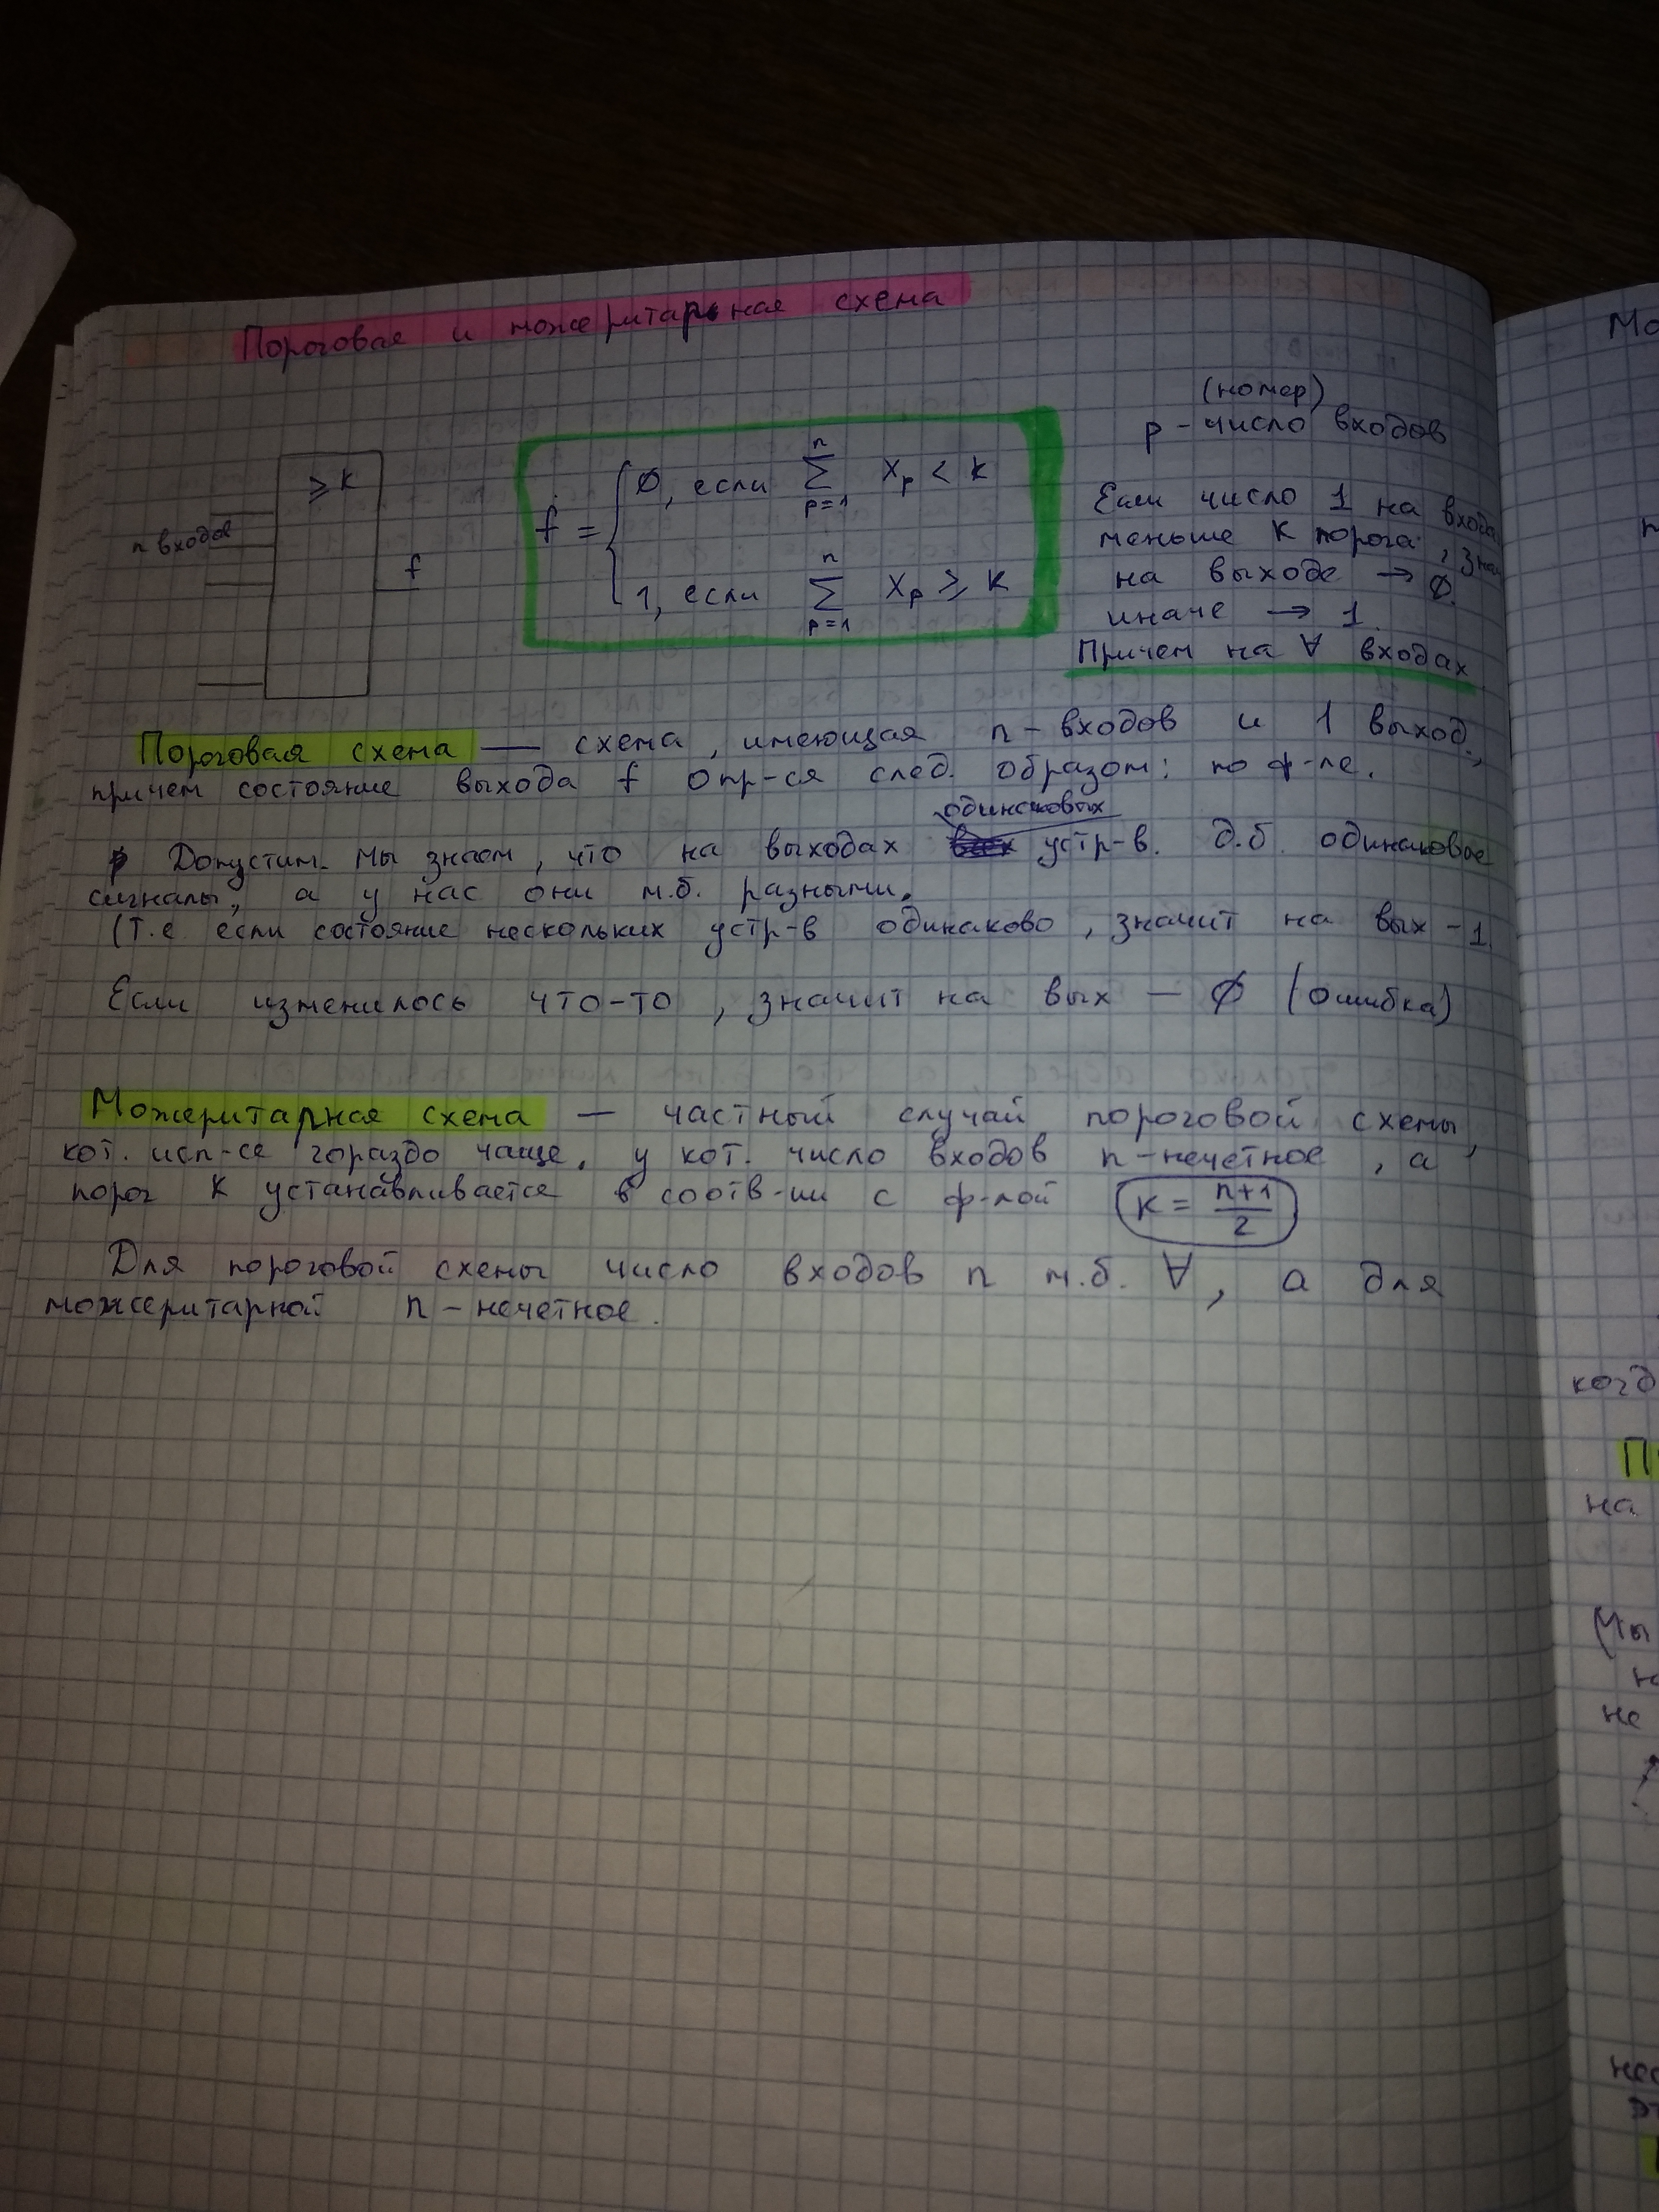 Пороговая и можеритарная схема
(номер)
p - число входов
n входов
≥ k
f
f = { 0, если ∑ p=1 n Xp < k
1, если ∑ p=1 n Xp ≥ k
Если число 1 на входа
меньше К порога, зна
на выходе → 0
иначе → 1.
Причем на ∀ входах
Пороговая схема — схема, имеющая n-входов и 1 выход,
причем состояние выхода f опр-ся след. образом: по ф-ле.
одинаковых
Допустим. Мы знаем, что на выходах устр-в. д.б. одинаковые
сигналы, а у нас они м.б. разными.
(Т.е если состояние нескольких устр-в одинаково, значит на вых - 1
Если изменилось что-то, значит на вых — 0 (ошибка)
Можеритарная схема — частный случай пороговой схемы,
кот. исп-се гораздо чаще, у кот. число входов n-нечетное, а
порог К устанавливается в соотв-ии с ф-лой K = (n+1)/2
Для пороговой схемы число входов n м.б. ∀, а для
можеритарной n - нечетное.
Мо
когд
на
(Мы
не